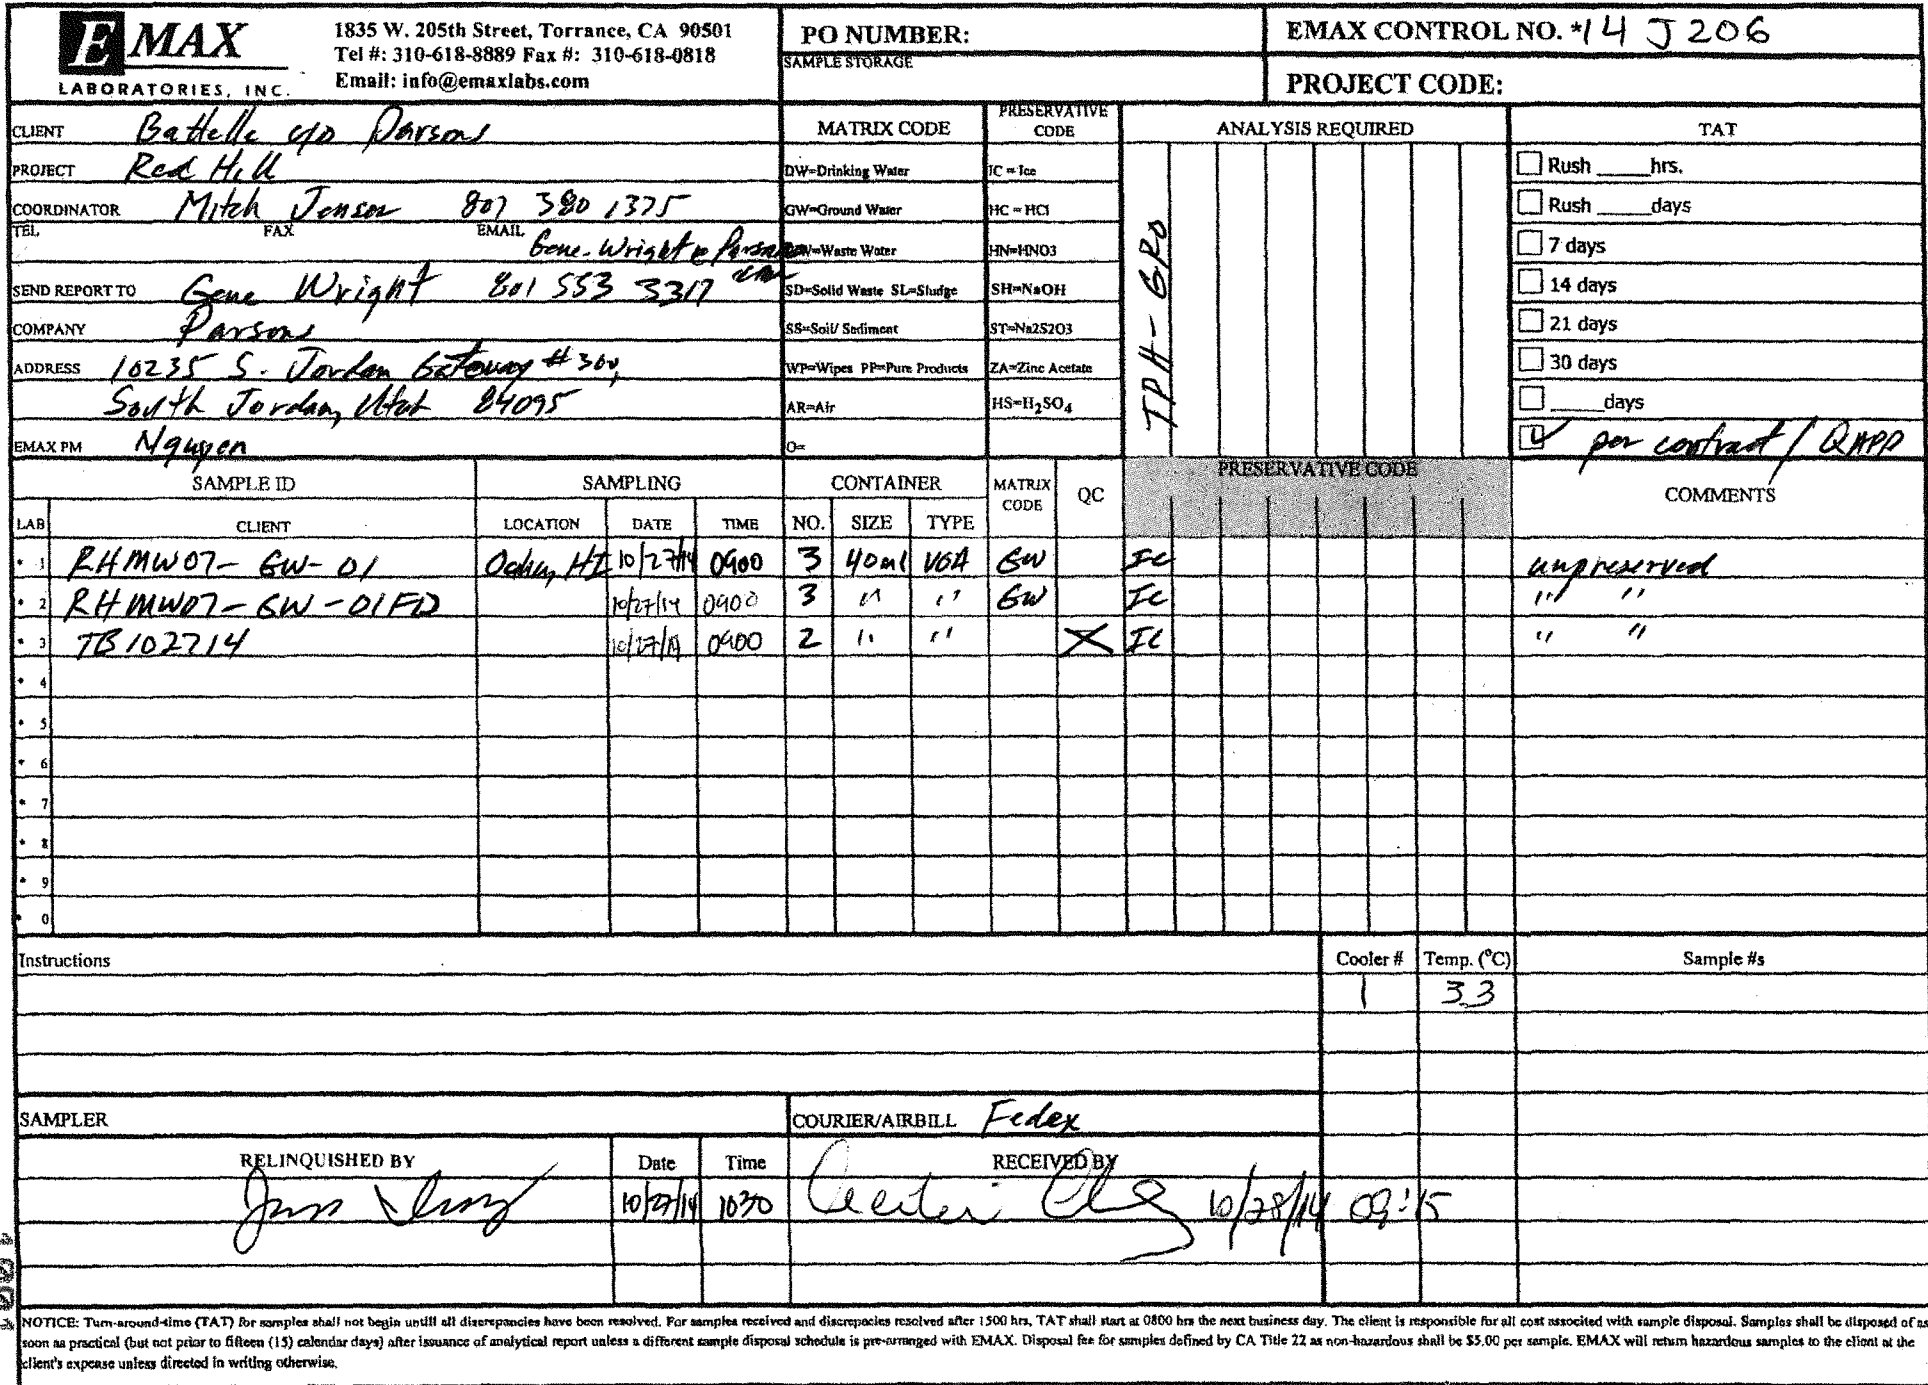 EMAX
LABORATORIES, INC.
1835 W. 205th Street, Torrance, CA 90501
Tel #: 310-618-8889 Fax #: 310-618-0818
Email: info@emaxlabs.com
PO NUMBER:
SAMPLE STORAGE
EMAX CONTROL NO. *14 J 206
PROJECT CODE:
CLIENT Battelle c/o Parsons
PROJECT Red Hill
COORDINATOR Mitch Jensen 801 380 1375
TEL FAX EMAIL Gene.Wright@Parsons
SEND REPORT TO Gene Wright 801 553 3317
COMPANY Parsons
ADDRESS 10235 S. Jordan Gateway #300,
South Jordan, Utah 84095
EMAX PM Nguyen
MATRIX CODE
DW=Drinking Water
GW=Ground Water
WW=Waste Water
SD=Solid Waste SL=Sludge
SS=Soil/ Sediment
WP=Wipes PP=Pure Products
AR=Air
O=
PRESERVATIVE CODE
IC = Ice
HC = HCl
HN=HNO3
SH=NaOH
ST=Na2S2O3
ZA=Zinc Acetate
HS=H₂SO₄
ANALYSIS REQUIRED
TPH-GRO
TAT
Rush _____hrs.
Rush _____days
7 days
14 days
21 days
30 days
_____days
per contract / QAPP
SAMPLE ID SAMPLING CONTAINER MATRIX CODE QC PRESERVATIVE CODE COMMENTS
LAB CLIENT LOCATION DATE TIME NO. SIZE TYPE
* 1 RHMW07-GW-01 Oahu, HI 10/27/14 0900 3 40ml VOA GW IC unpreserved
* 2 RHMW07-GW-01FD 10/27/14 0900 3 " " GW IC " "
* 3 TB102714 10/27/14 0900 2 " " X IC " "
* 4
* 5
* 6
* 7
* 8
* 9
* 0
Instructions Cooler # Temp. (°C) Sample #s
1 3.3
SAMPLER COURIER/AIRBILL Fedex
RELINQUISHED BY Date Time RECEIVED BY
10/27/14 1030 10/28/14 09:15
NOTICE: Turn-around-time (TAT) for samples shall not begin untill all discrepancies have been resolved. For samples received and discrepacies resolved after 1500 hrs, TAT shall start at 0800 hrs the next business day. The client is responsible for all cost associted with sample disposal. Samples shall be disposed of as
soon as practical (but not prior to fifteen (15) calendar days) after issuance of analytical report unless a different sample disposal schedule is pre-arranged with EMAX. Disposal fee for samples defined by CA Title 22 as non-hazardous shall be $5.00 per sample. EMAX will return hazardous samples to the client at the
client's expense unless directed in writing otherwise.